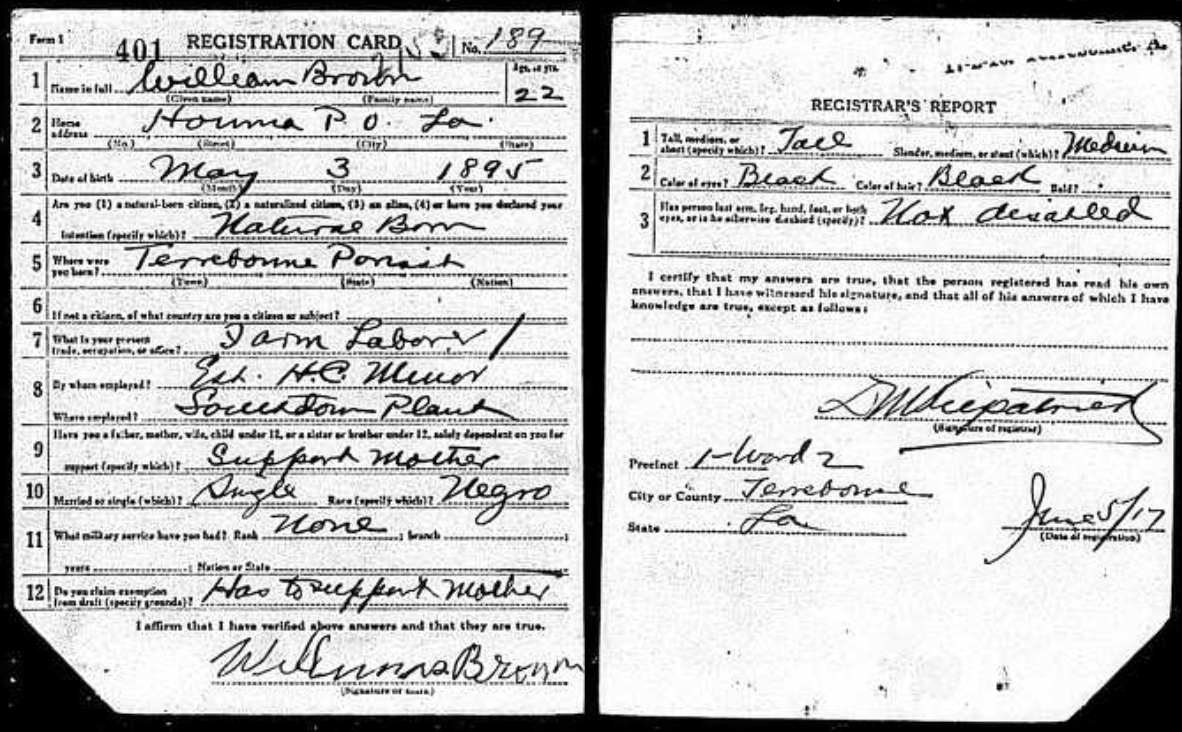 Form 1
401 REGISTRATION CARD No. 189
1 Name in full William Brown Age, in yrs. 22
(Given name) (Family name)
2 Home address Houma P O. La.
(No.) (Street) (City) (State)
3 Date of birth May 3 1895
(Month) (Day) (Year)
4 Are you (1) a natural-born citizen, (2) a naturalized citizen, (3) an alien, (4) or have you declared your
intention (specify which)? Natural Born
5 Where were you born? Terrebonne Parish
(Town) (State) (Nation)
6 If not a citizen, of what country are you a citizen or subject?
7 What is your present trade, occupation, or office? Farm Laborer
8 By whom employed? Est. H.C. Minor
Where employed? Southdown Plant
9 Have you a father, mother, wife, child under 12, or a sister or brother under 12, solely dependent on you for
support (specify which)? Support Mother
10 Married or single (which)? Single Race (specify which)? Negro
11 What military service have you had? Rank None ; branch ;
years ; Nation or State
12 Do you claim exemption from draft (specify grounds)? Has to support Mother
I affirm that I have verified above answers and that they are true.
(Signature or mark)
REGISTRAR'S REPORT
1 Tall, medium, or short (specify which)? Tall Slender, medium, or stout (which)? Medium
2 Color of eyes? Black Color of hair? Black Bald?
3 Has person lost arm, leg, hand, foot, or both eyes, or is he otherwise disabled (specify)? Not disabled
I certify that my answers are true, that the person registered has read his own
answers, that I have witnessed his signature, and that all of his answers of which I have
knowledge are true, except as follows:
(Signature of registrar)
Precinct 1-Ward 2
City or County Terrebonne
State La
June 5/17
(Date of registration)